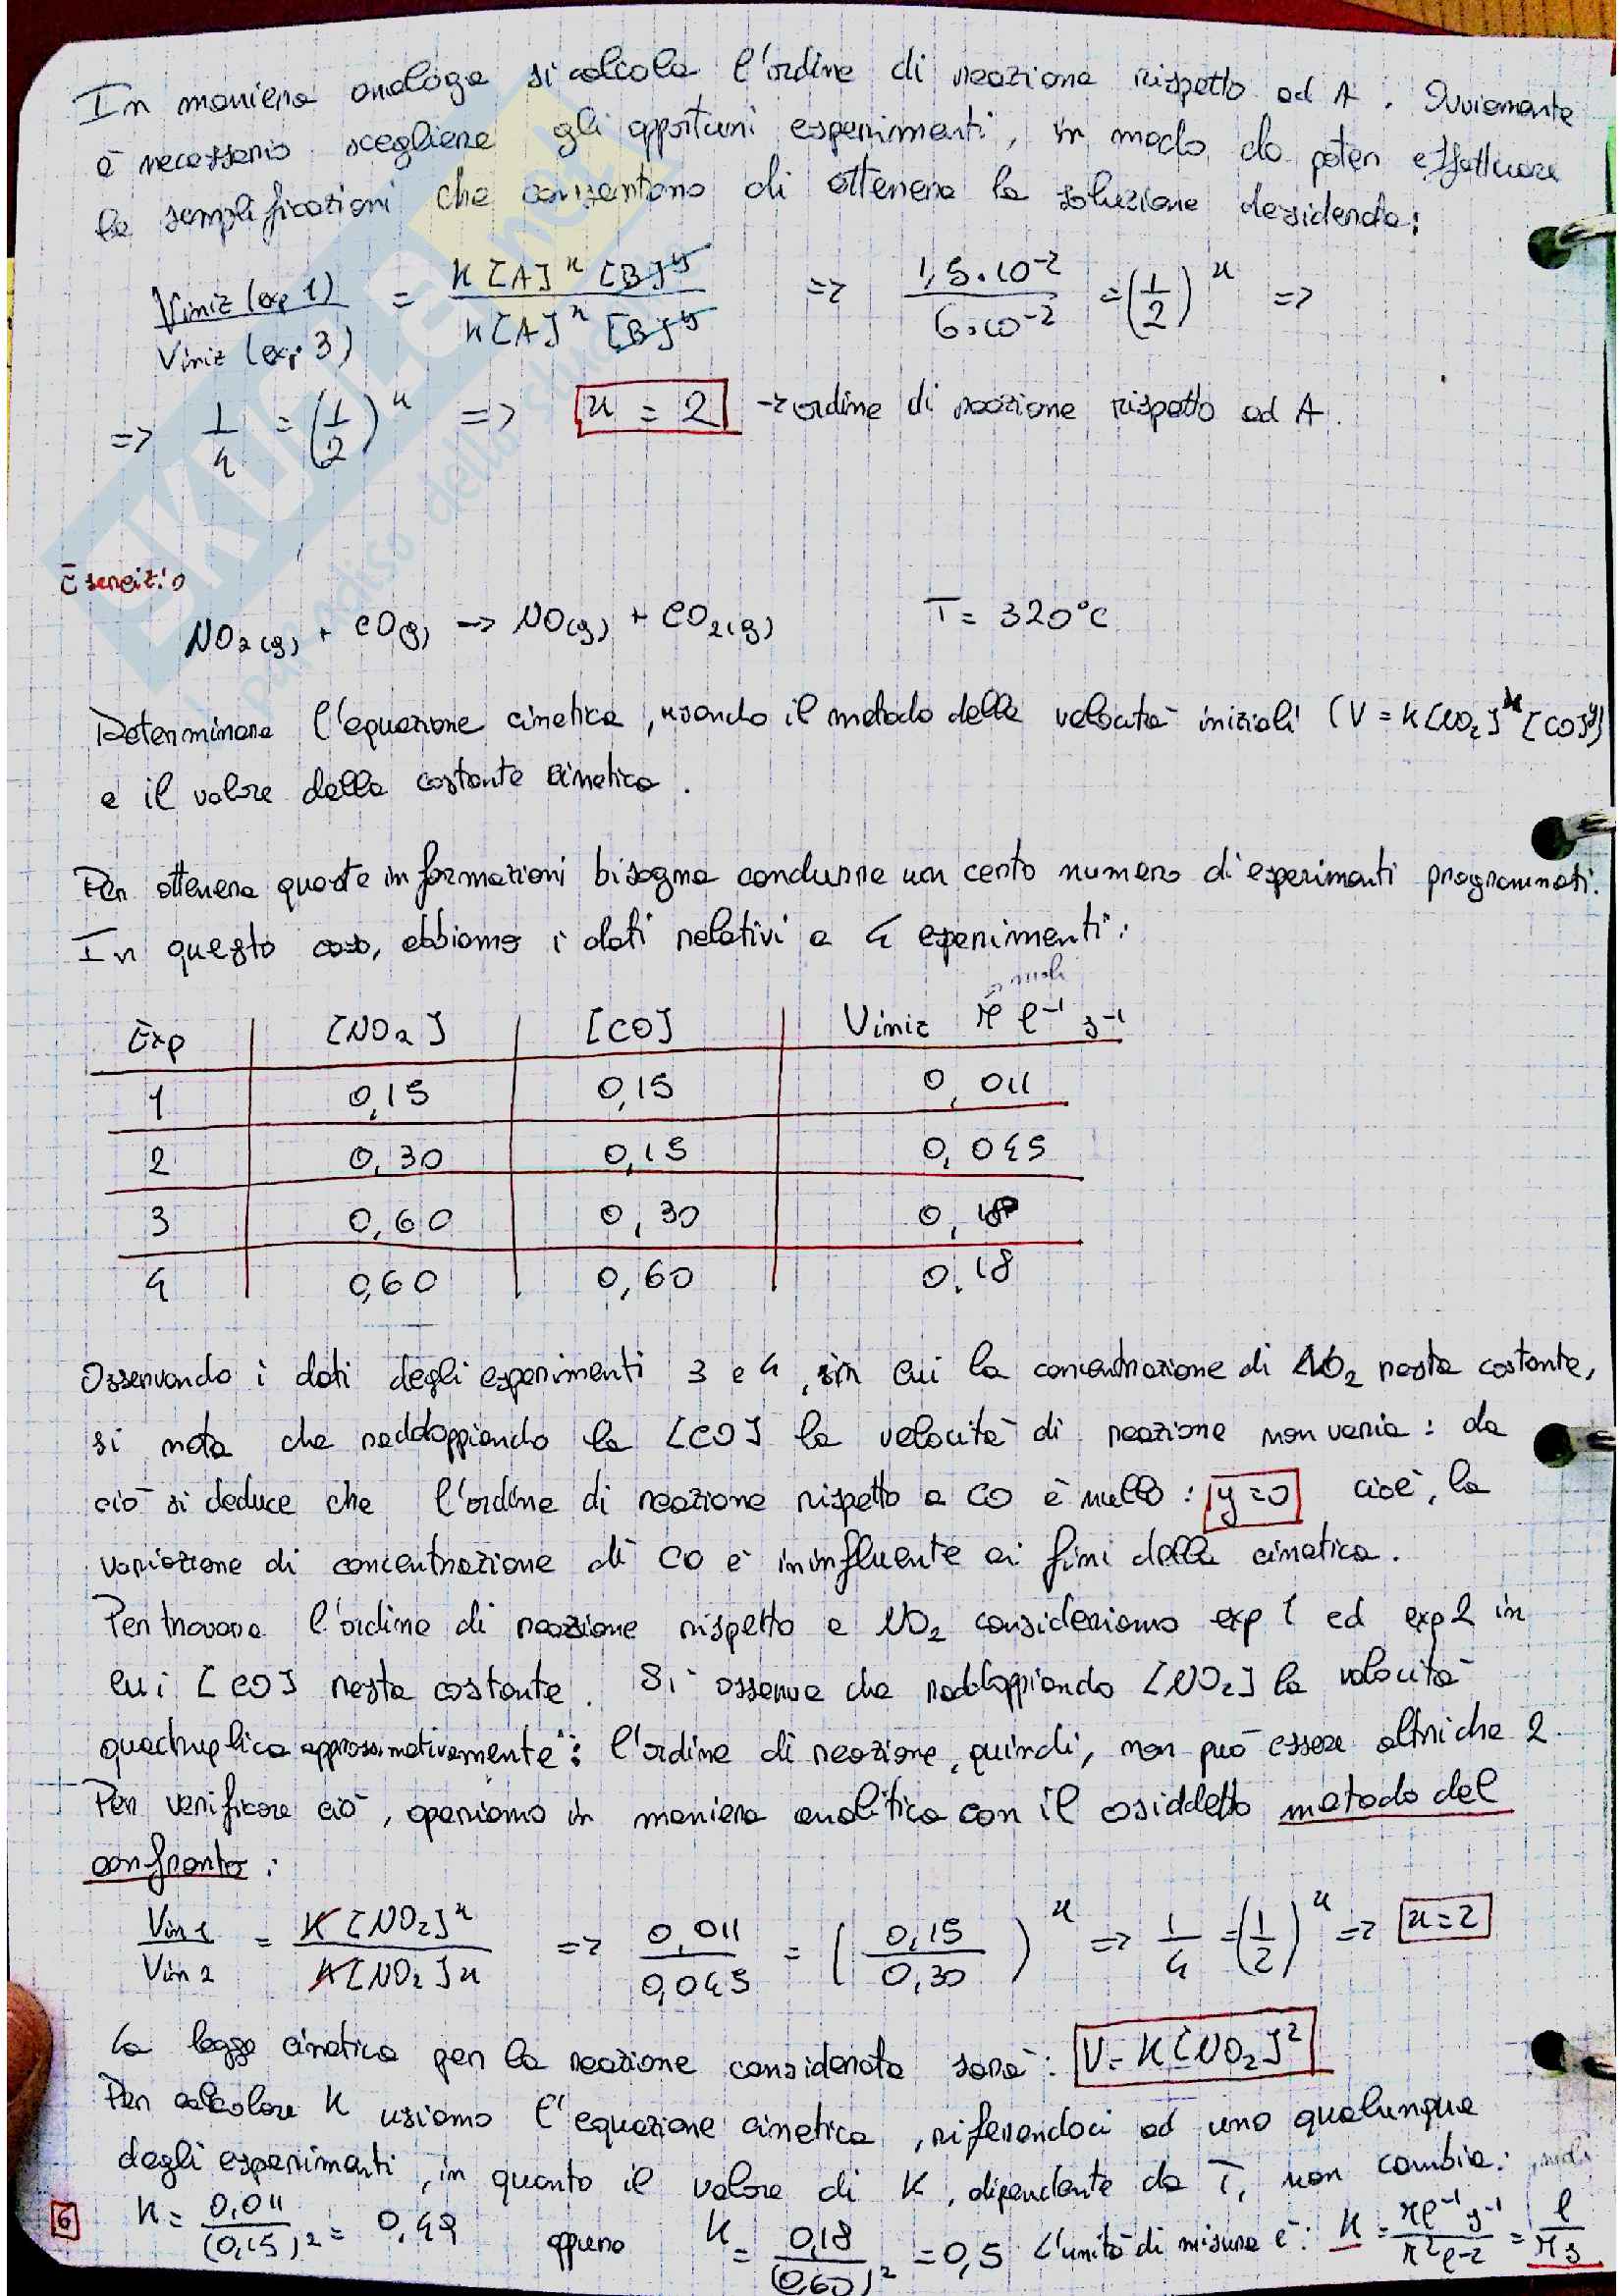 In maniera analoga si calcola l'ordine di reazione rispetto ad A. Ovviamente
è necessario scegliere gli opportuni esperimenti, in modo da poter effettuare
le semplificazioni che consentano di ottenere la soluzione desiderata:
Viniz (exp 1) / Viniz (exp 3) = K [A]^x [B]^y / K [A]^x [B]^y => 1,5·10^-2 / 6·10^-2 = (1/2)^x =>
=> 1/4 = (1/2)^x => x = 2 → ordine di reazione rispetto ad A.
Esercizio
NO2(g) + CO(g) → NO(g) + CO2(g) T = 320°C
Determinare l'equazione cinetica, usando il metodo delle velocità iniziali (V = K[NO2]^x [CO]^y)
e il valore della costante cinetica.
Per ottenere queste informazioni bisogna condurre un certo numero di esperimenti programmati.
In questo caso, abbiamo i dati relativi a 4 esperimenti:
→ moli
Exp [NO2] [CO] Viniz M l^-1 s^-1
1 0,15 0,15 0,011
2 0,30 0,15 0,045
3 0,60 0,30 0,18
4 0,60 0,60 0,18
Osservando i dati degli esperimenti 3 e 4, in cui la concentrazione di NO2 resta costante,
si nota che raddoppiando la [CO] la velocità di reazione non varia: da
ciò si deduce che l'ordine di reazione rispetto a CO è nullo: y=0 cioè, la
variazione di concentrazione di CO è ininfluente ai fini della cinetica.
Per trovare l'ordine di reazione rispetto a NO2 consideriamo exp 1 ed exp 2 in
cui [CO] resta costante. Si osserva che raddoppiando [NO2] la velocità
quadruplica approssimativamente: l'ordine di reazione, quindi, non può essere altri che 2
Per verificare ciò, operiamo in maniera analitica con il cosiddetto metodo del
confronto:
Vin 1 / Vin 2 = K [NO2]^x / K [NO2]^x => 0,011 / 0,045 = (0,15 / 0,30)^x => 1/4 = (1/2)^x => x=2
La legge cinetica per la reazione considerata sarà: V = K[NO2]^2
Per calcolare K usiamo l'equazione cinetica, riferendoci ad uno qualunque
degli esperimenti, in quanto il valore di K, dipendente da T, non cambia: moli
6 K = 0,011 / (0,15)^2 = 0,49 oppure K = 0,18 / (0,60)^2 = 0,5 L'unità di misura è: K = M l^-1 s^-1 / M^2 l^-2 = l / M s